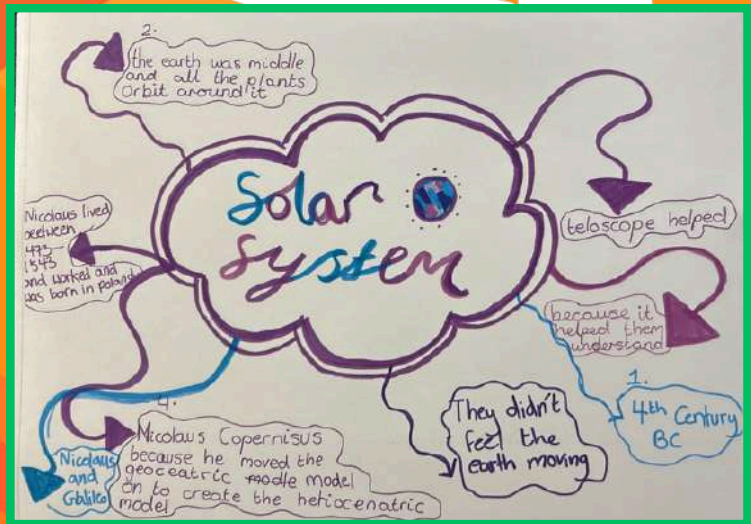 2.
the earth was middle
and all the plants
Orbit around it
Solar
System
teloscope helped
Nicolaus lived
between
1543
and worked and
was born in poland
because it
helped them
understand
1.
4th Century
BC
They didn't
feel the
earth moving
4.
Nicolaus Copernisus
because he moved the
geoceatric modle model
on to create the heliocenatric
model
Nicolaus
and
Galileo